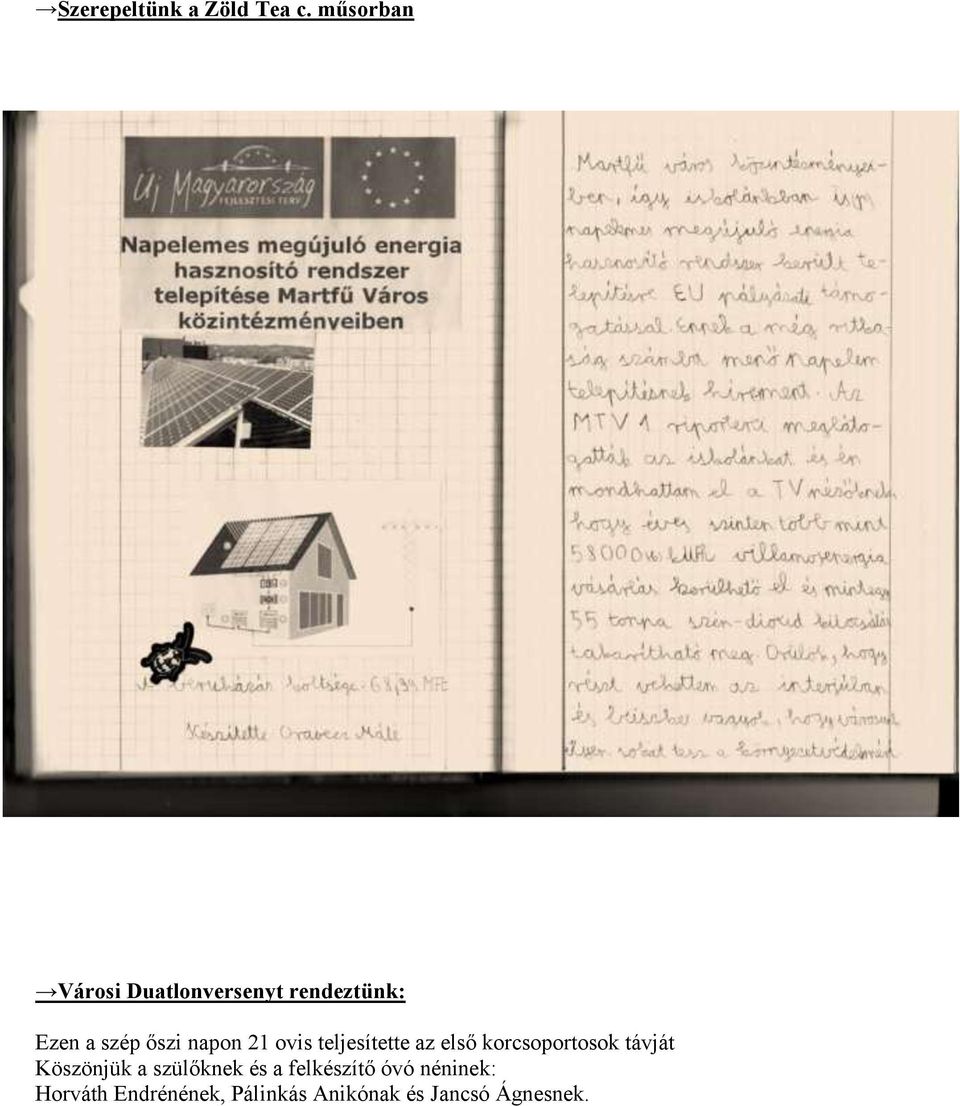 →Szerepeltünk a Zöld Tea c. műsorban
Új Magyarország
FEJLESZTÉSI TERV
Napelemes megújuló energia
hasznosító rendszer
telepítése Martfű Város
közintézményeiben
A beruházás költsége: 68,94 MFt
Készítette Oravecz Máté
Martfű város közintézményei-
ben, így iskolánkban is
napelemes megújuló energia
hasznosító rendszer került te-
lepítésre EU pályázati támo-
gatással. Ennek a még ritka-
ság számba menő napelem
telepítésnek híre ment. Az
MTV 1 riporterei megláto-
gatták az iskolánkat és én
mondhattam el a TV nézőknek,
hogy éves szinten több mint
58000 kWh villamosenergia
vásárlás kerülhető el és mintegy
55 tonna szén-dioxid kibocsátás
takarítható meg. Örülök, hogy
részt vehettem az interjúban
és büszke vagyok, hogy városunk
ilyen sokat tesz a környezetvédelemért
→Városi Duatlonversenyt rendeztünk:
Ezen a szép őszi napon 21 ovis teljesítette az első korcsoportosok távját
Köszönjük a szülőknek és a felkészítő óvó néninek:
Horváth Endrénének, Pálinkás Anikónak és Jancsó Ágnesnek.